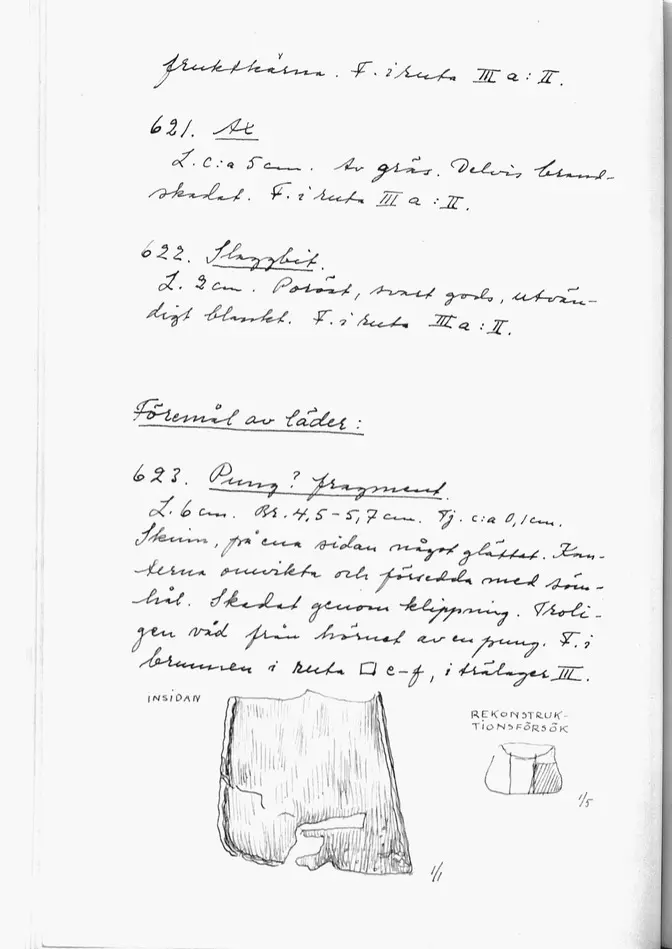 fruktkärna. F. i ruta III a : II.
621. Ax
L. c:a 5 cm. Av gräs. Delvis brand-
skadat. F. i ruta III a : II.
622. Slaggbit.
L. 2 cm. Poröst, svart gods, utvän-
digt blankt. F. i ruta III a : II.
Föremål av läder :
623. Pung? fragment.
L. 6 cm. Br. 4,5-5,7 cm. Tj. c:a 0,1 cm.
Skinn, på ena sidan något glättat. Kan-
terna omvikta och försedda med söm-
hål. Skadat genom klippning. Troli-
gen våd från hörnet av en pung. F. i
brunnen i ruta □ e-f, i trälager III.
INSIDAN
REKONSTRUK-
TIONSFÖRSÖK
1/5
1/1